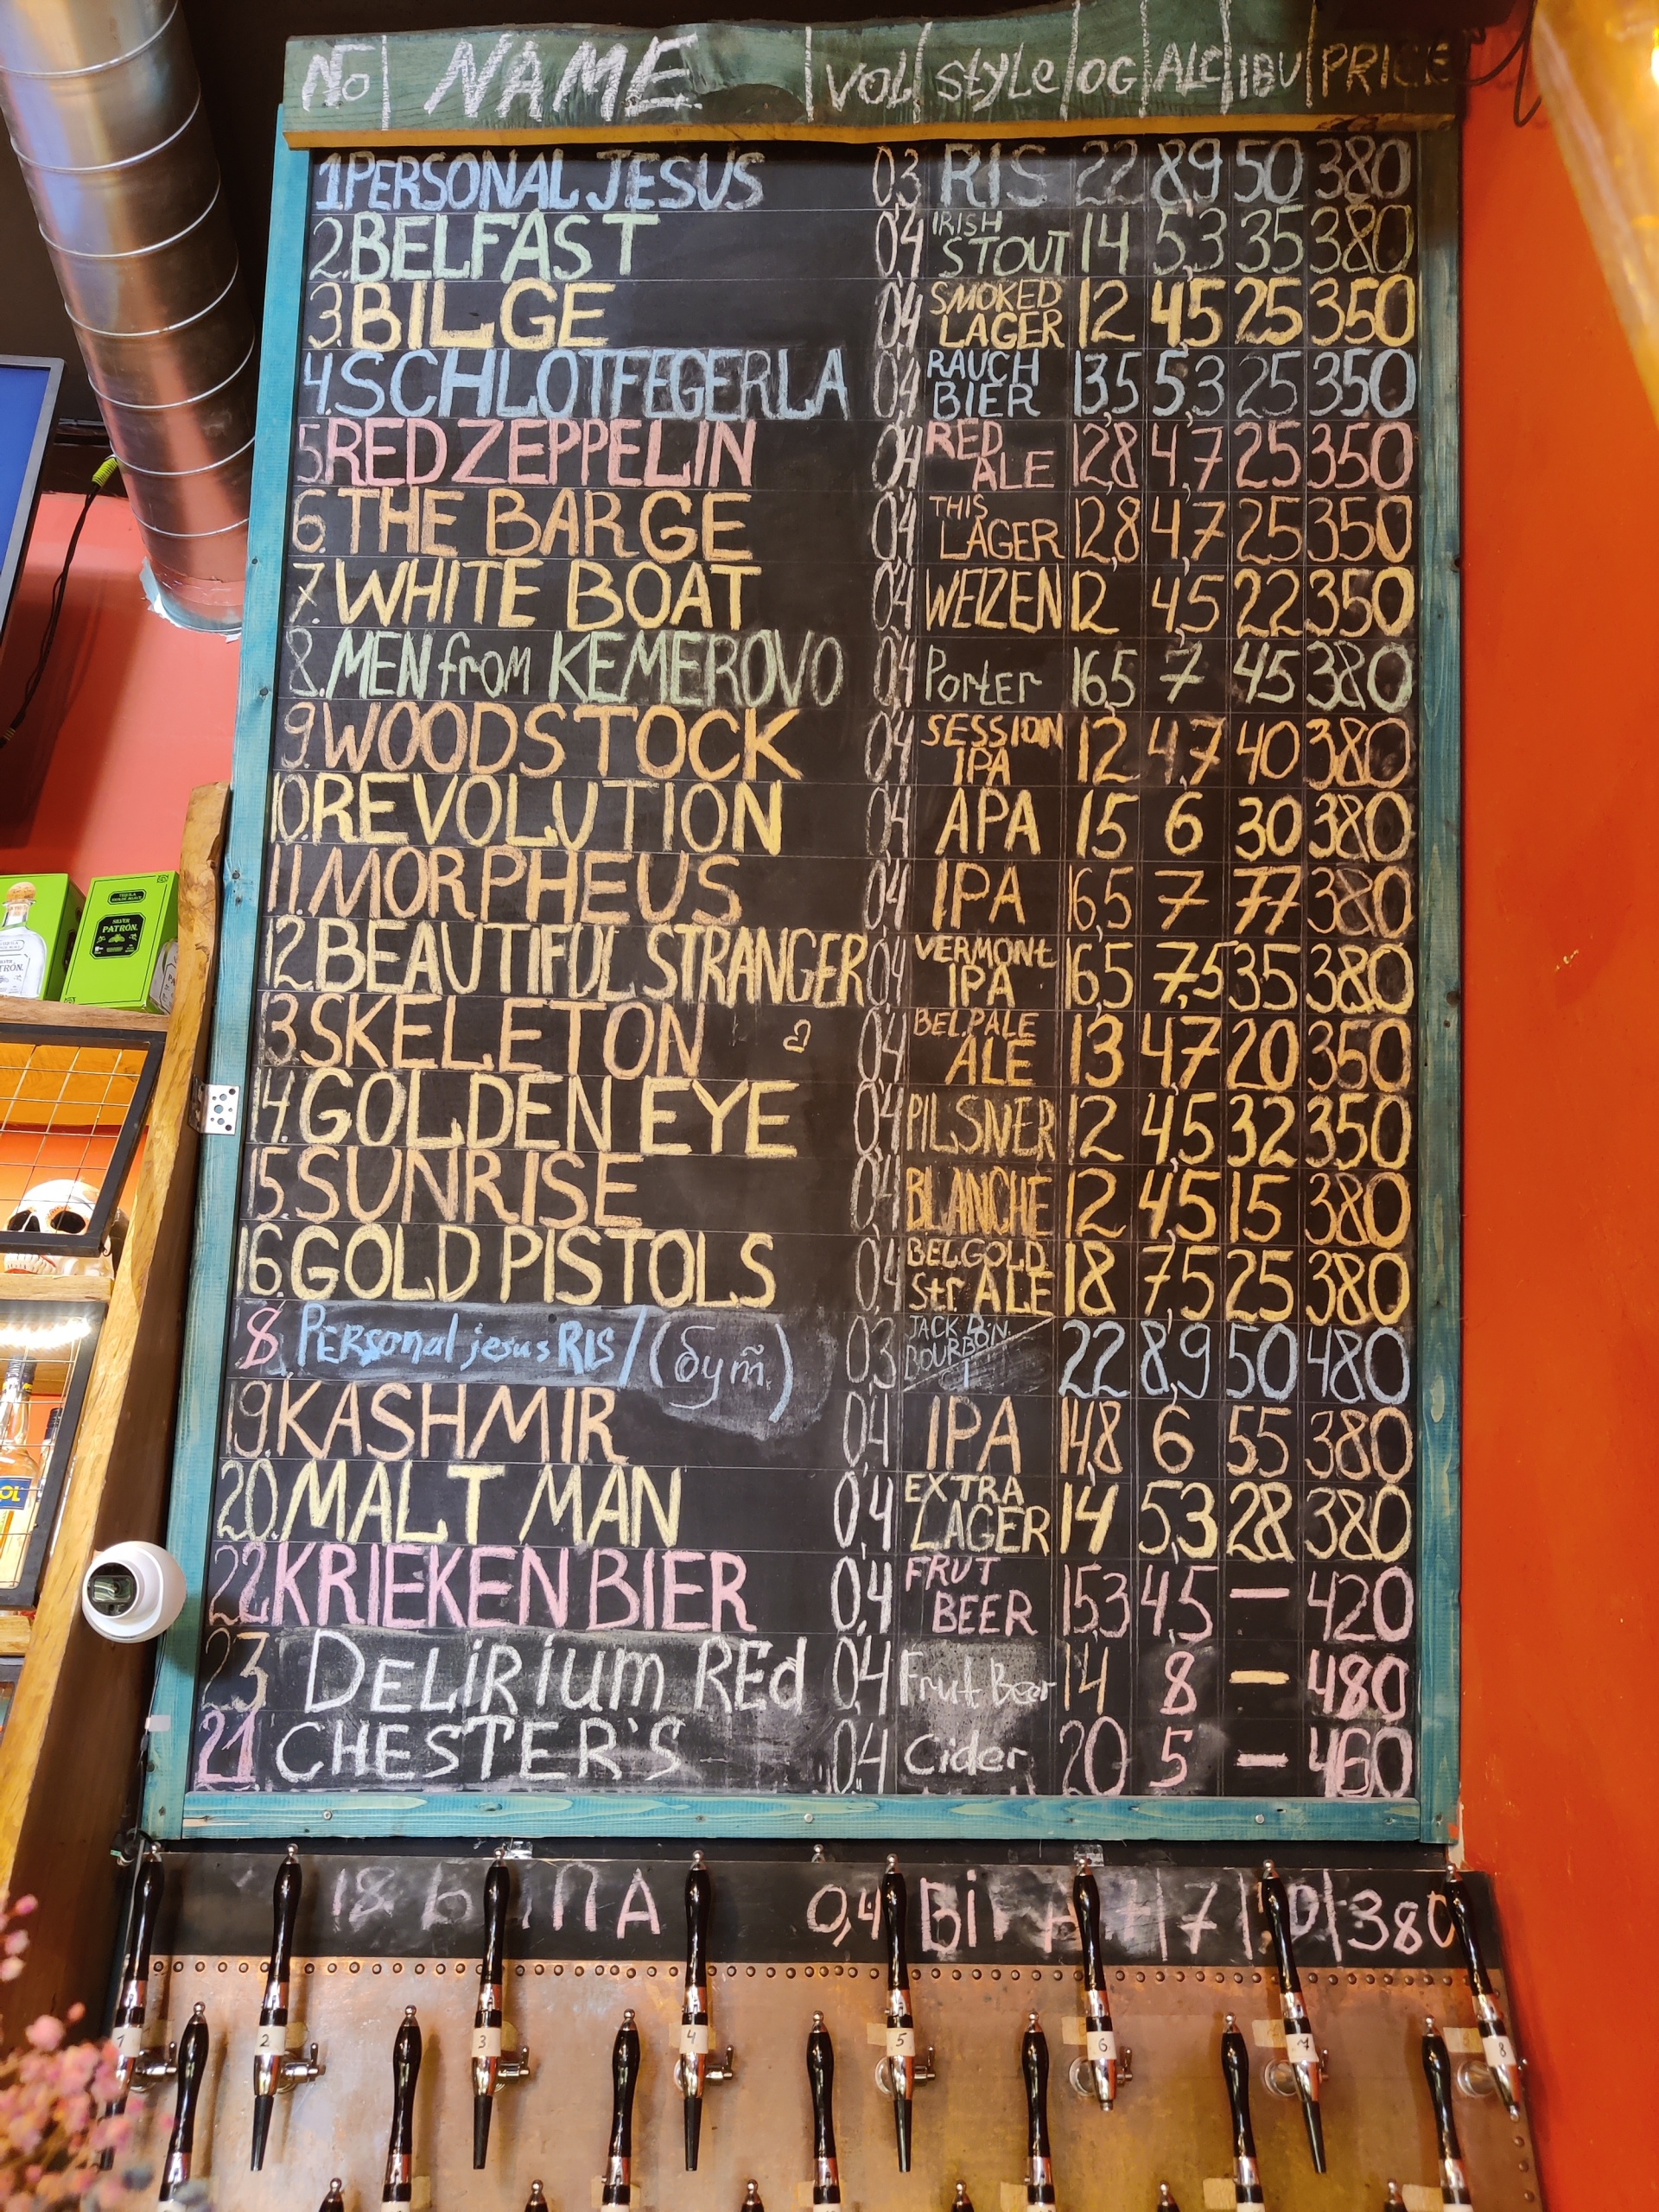 No NAME VOL StyLe OG ALC IBU PRICE
1 PERSONAL JESUS 0,3 RIS 22 8,9 50 380
2. BELFAST 0,4 IRISH STOUT 14 5,3 35 380
3. BILGE 0,4 SMOKED LAGER 12 4,5 25 350
4. SCHLOTFEGERLA 0,4 RAUCH BIER 13,5 5,3 25 350
5 RED ZEPPELIN 0,4 RED ALE 12,8 4,7 25 350
6. THE BARGE 0,4 THIS LAGER 12,8 4,7 25 350
7. WHITE BOAT 0,4 WEIZEN 12 4,5 22 350
8. MEN from KEMEROVO 0,4 Porter 16,5 7 45 380
9 WOODSTOCK 0,4 SESSION IPA 12 4,7 40 380
10. REVOLUTION 0,4 APA 15 6 30 380
11. MORPHEUS 0,4 IPA 16,5 7 77 380
12. BEAUTIFUL STRANGER 0,4 VERMONt IPA 16,5 7,5 35 380
13. SKELETON 0,4 BEL.PALE ALE 13 4,7 20 350
14. GOLDEN EYE 0,4 PILSNER 12 4,5 32 350
15. SUNRISE 0,4 BLANCHE 12 4,5 15 380
16. GOLD PISTOLS 0,4 BEL.GOLD Str. ALE 18 7,5 25 380
8 Personal jesus RIS / (бурб.) 0,3 JACK D.N. BOURBON 22 8,9 50 480
19 KASHMIR 0,4 IPA 14,8 6 55 380
20. MALT MAN 0,4 EXTRA LAGER 14 5,3 28 380
22 KRIEKENBIER 0,4 FRUT BEER 15,3 4,5 — 420
23 DELiRium REd 0,4 Frut Beer 14 8 — 480
21 CHESTER'S 0,4 Cider 20 5 — 460
18 0,4 7 380
SILVER
PATRÓN
1 2 3 4 5 6 7 8